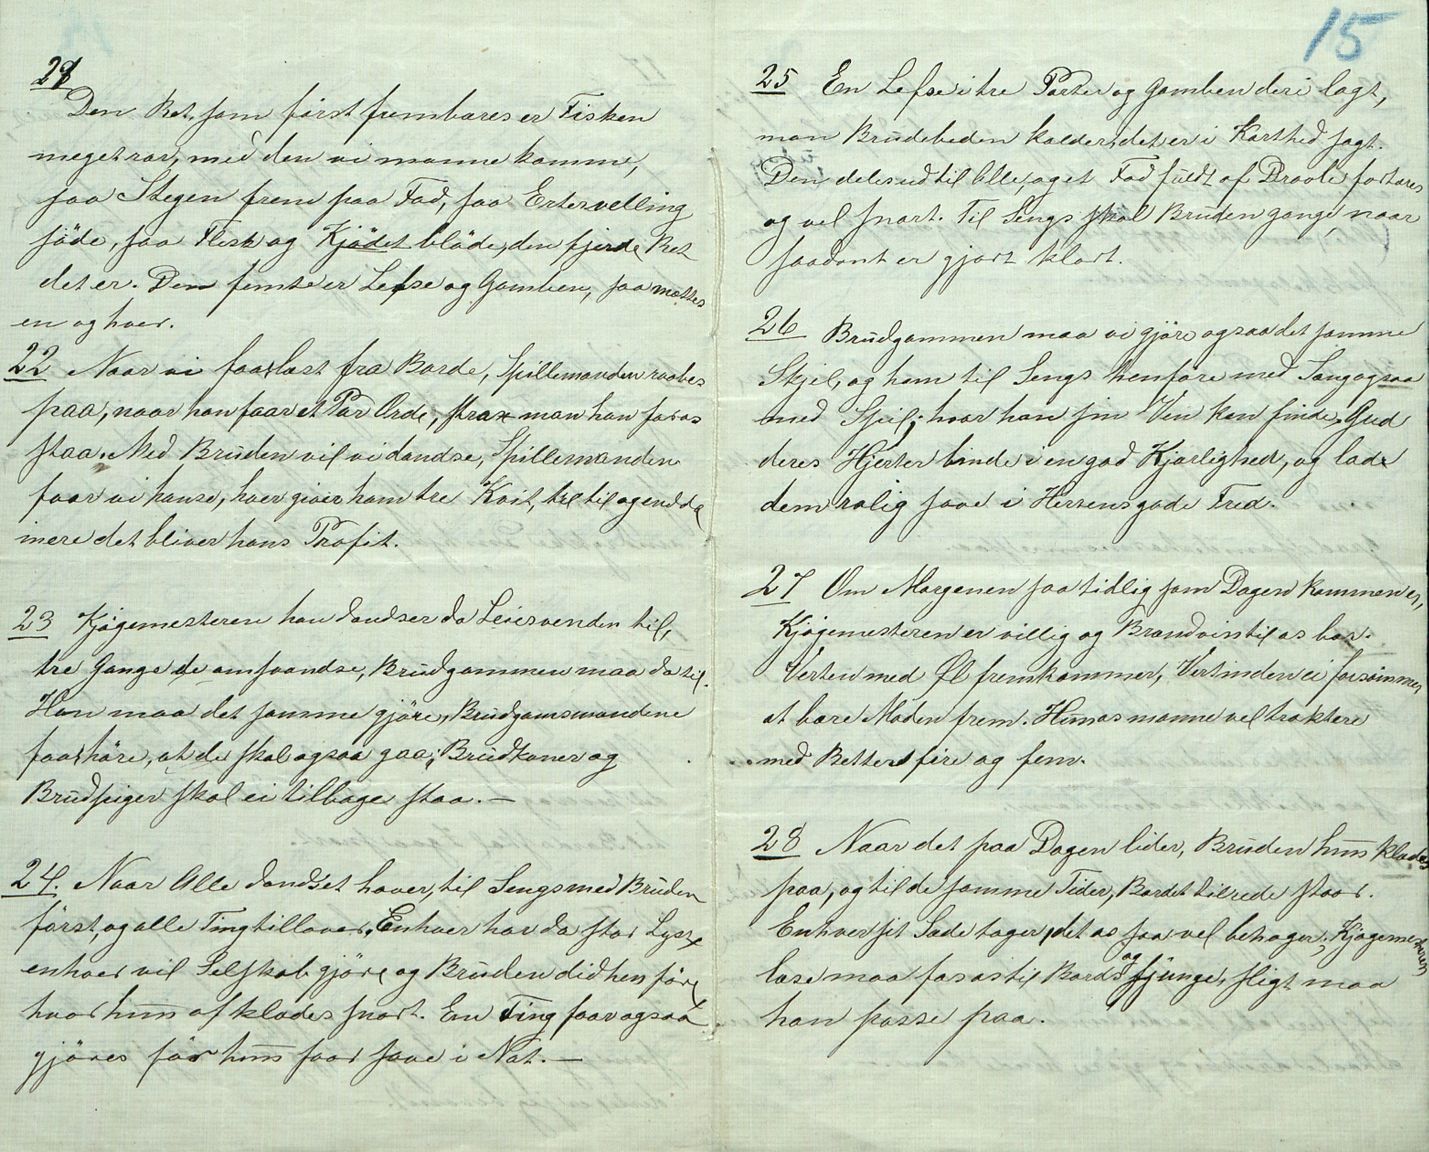 21
Den Ret, som först frembæres er Fisken
meget rar, med den vi monne komme,
saa Stegen frem paa Fad, saa Ertevelling
söde, saa Flesk og Kjödet blöde, den fjerde Ret
det er. Den femte er Lefse og Gomben, saa mættes
en og hver.
22 Naar vi faar læst fra Borde, Spillemanden raabes
paa, naar han faar et Par Orde, strax man han for os
staa. Med Bruden vil vi dandse, Spillemanden
faar vi handse, hver giver ham tre Kvit, til og end da
mere det bliver hans Profit.
23 Kjögemesteren han dandser da Leiesvenden til,
tre Gange de omsvandse, Brudgommen maa da til.
Han maa det samme gjöre, Brudgomsmændene
faar höre, at de skal ogsaa gaa; Brudkoner og
Brudpiger skal ei tilbage staa. —
24. Naar Alle dandset haver, til Sengs med Bruden
först, og alle Ting tillaver, Enhver har da stor Lyst,
enhver vil Selskab gjöre og Bruden didhen före
hvor hun afklædes snart. En Ting faar ogsaa
gjöres för hun faar sove i Nat. —
15
25 En Lefse i tre Parter og Gomben deri lagt,
man Brudebeden kalder, det er i Korthed sagt.
Den deles ud til Alle, og et Fad fuldt af Dravle fortæres
og vel snart. Til Sengs skal Bruden gange, naar
saadant er gjort klart.
26 Brudgommen maa vi gjöre ogsaa det samme
Skjel, og ham til Sengs henföre med Sang og saa
med Spil; hvor han sin Ven kan finde, Gud
deres Hjerter binde i en god Kjærlighed, og lade
dem rolig sove i Herrens gode Fred.
27 Om Morgenen saa tidlig som Dagen kommen er,
Kjögemesteren er villig og Brændvin til os bær.
Verten med Öl fremkommer, Vertinden ei forsömmer
at bære Maden frem. Hun os monne vel traktere
med Retter fire og fem.
28 Naar det paa Dagen lider, Bruden hun klædes
paa, og til de samme Tider, Bordet tilrede staar.
Enhver sit Sæde tager, det os saa vel behager; Kjögemesteren
læse maa for os til Bords og sjunge, sligt maa
han passe paa.